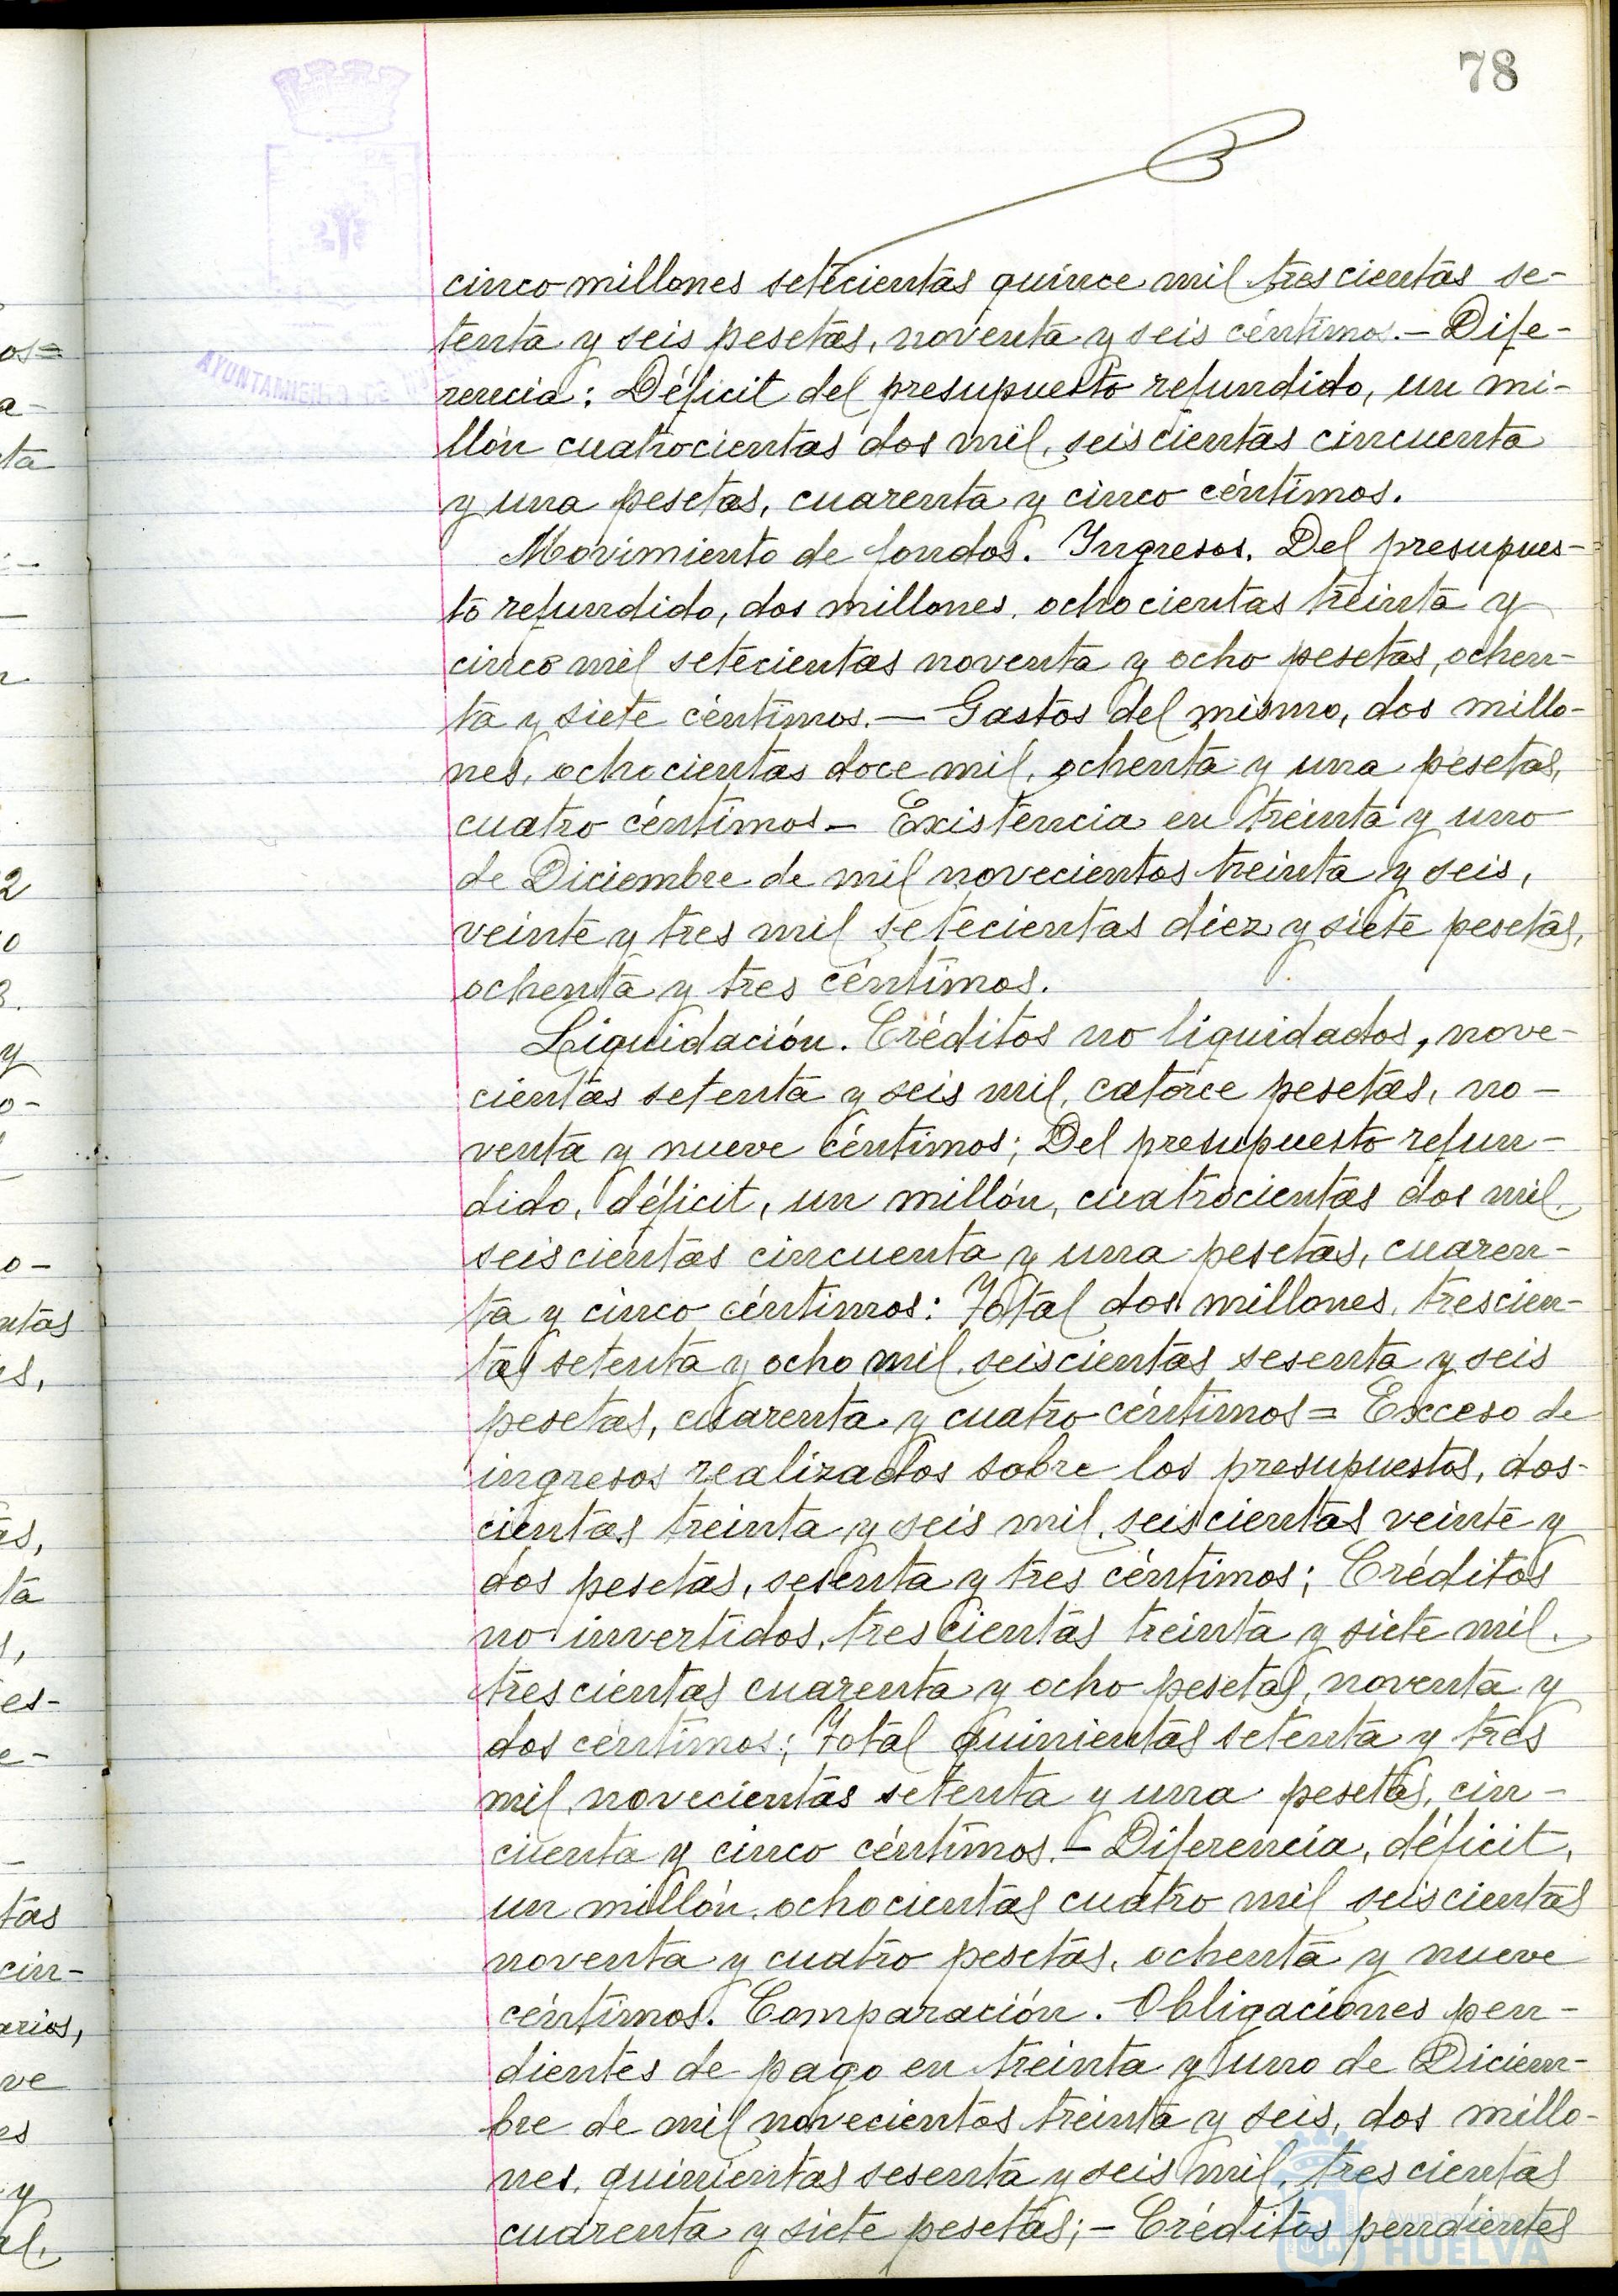 78
cinco millones setecientas quince mil trescientas se-
tenta y seis pesetas, noventa y seis céntimos.- Dife-
rencia: Déficit del presupuesto refundido, un mi-
llón cuatrocientas dos mil, seiscientas cincuenta
y una pesetas, cuarenta y cinco céntimos.
Movimiento de fondos. Ingresos. Del presupues-
to refundido, dos millones, ochocientas treinta y
cinco mil setecientas noventa y ocho pesetas, ochen-
ta y siete céntimos.— Gastos del mismo, dos millo-
nes, ochocientas doce mil, ochenta y una pesetas,
cuatro céntimos- Existencia en treinta y uno
de Diciembre de mil novecientos treinta y seis,
veinte y tres mil setecientas diez y siete pesetas,
ochenta y tres céntimos.
Liquidación. Créditos no liquidados, nove-
cientas setenta y seis mil, catorce pesetas, no-
venta y nueve céntimos; Del presupuesto refun-
dido, déficit, un millón, cuatrocientas dos mil,
seiscientas cincuenta y una pesetas, cuaren-
ta y cinco céntimos: Total dos millones, trescien-
tas setenta y ocho mil, seiscientas sesenta y seis
pesetas, cuarenta y cuatro céntimos= Exceso de
ingresos realizados sobre los presupuestos, dos-
cientas treinta y seis mil, seiscientas veinte y
dos pesetas, sesenta y tres céntimos; Créditos
no invertidos, trescientas treinta y siete mil,
trescientas cuarenta y ocho pesetas, noventa y
dos céntimos; Total quinientas setenta y tres
mil, novecientas setenta y una pesetas, cin-
cuenta y cinco céntimos.- Diferencia, déficit,
un millón, ochocientas cuatro mil seiscientas
noventa y cuatro pesetas, ochenta y nueve
céntimos. Comparación. Obligaciones pen-
dientes de pago en treinta y uno de Diciem-
bre de mil novecientos treinta y seis, dos millo-
nes, quinientas sesenta y seis mil, trescientas
cuarenta y siete pesetas;- Créditos pendientes
AYUNTAMIENTO DE
HUELVA